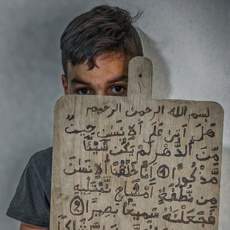 بسم الله الرحمن الرحيم
هَلْ أَتَىٰ عَلَى ٱلْإِنسَٰنِ حِينٌ
مِّنَ ٱلدَّهْرِ لَمْ يَكُن شَيْـًٔا
مَّذْكُورًا ١ إِنَّا خَلَقْنَا ٱلْإِنسَٰنَ
مِن نُّطْفَةٍ أَمْشَاجٍ نَّبْتَلِيهِ
فَجَعَلْنَٰهُ سَمِيعًۢا بَصِيرًا ٢